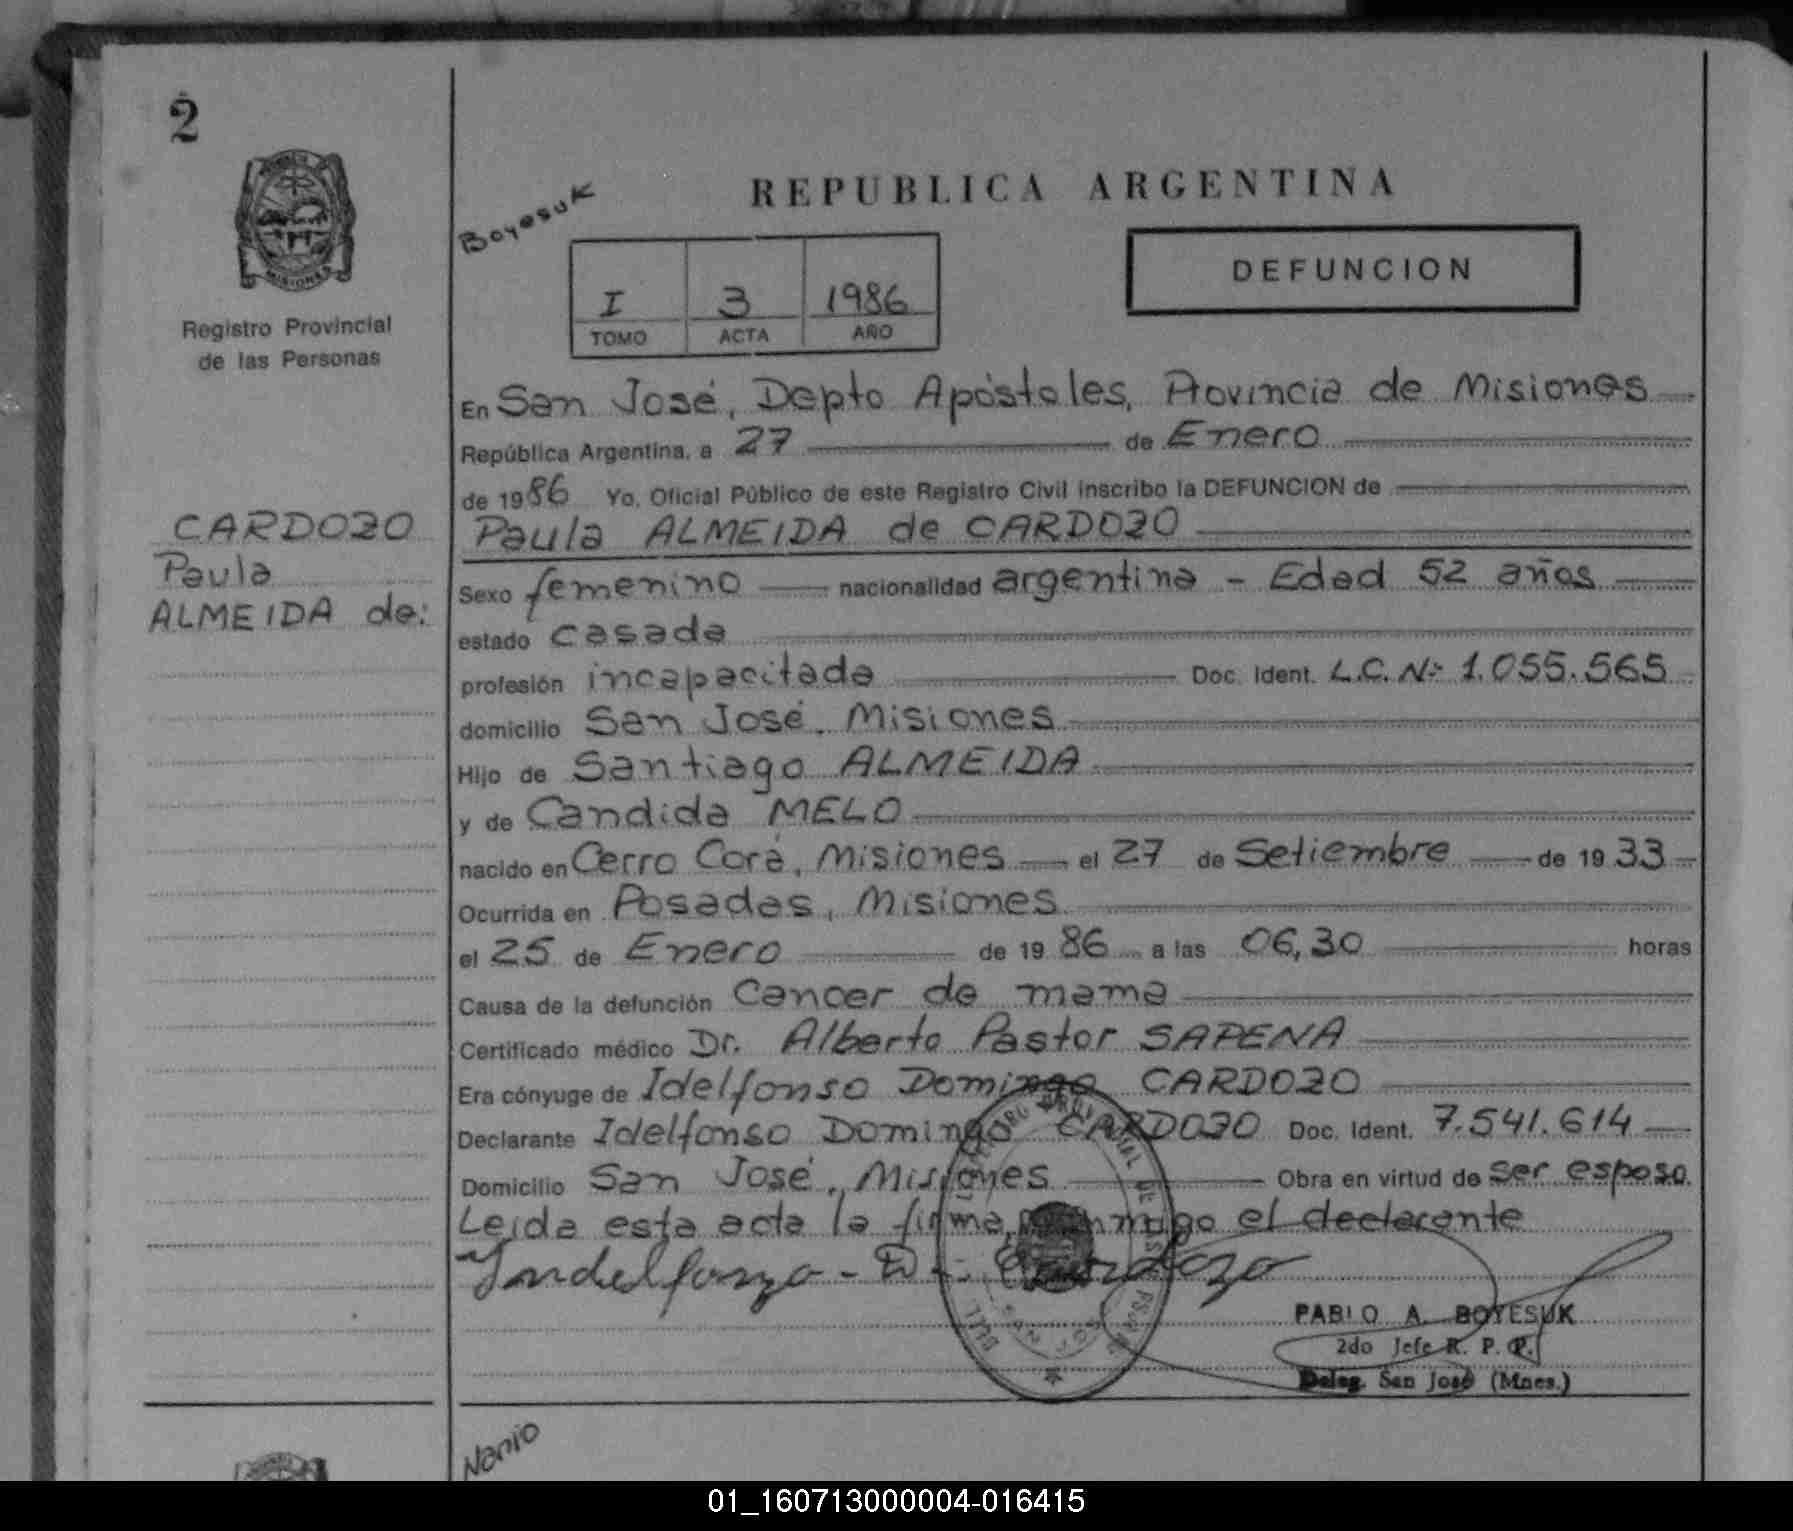 2
MISIONES
Registro Provincial
de las Personas
CARDOZO
Paula
ALMEIDA de:
Boyesuk
REPUBLICA ARGENTINA
DEFUNCION
I 3 1986
TOMO ACTA AÑO
En San José, Depto Apóstoles, Provincia de Misiones
República Argentina, a 27 de Enero
de 1986 Yo, Oficial Público de este Registro Civil inscribo la DEFUNCION de
Paula ALMEIDA de CARDOZO
Sexo femenino nacionalidad argentina - Edad 52 años
estado casada
profesión incapacitada Doc. Ident. L.C. Nº 1.055.565
domicilio San José, Misiones
Hijo de Santiago ALMEIDA
y de Candida MELO
nacido en Cerro Corá, Misiones el 27 de Setiembre de 1933
Ocurrida en Posadas, Misiones
el 25 de Enero de 1986 a las 06,30 horas
Causa de la defunción Cancer de mama
Certificado médico Dr. Alberto Pastor SAPENA
Era cónyuge de Idelfonso Domingo CARDOZO
Declarante Idelfonso Domingo CARDOZO Doc. Ident. 7.541.614
Domicilio San José, Misiones Obra en virtud de ser esposo.
Leida esta acta la firma, conmigo el declarante
Indelfonzo - D - Cardozo
PABLO A. BOYESUK
2do Jefe R. P. P.
Deleg. San José (Mnes.)
Nanio
01_160713000004-016415